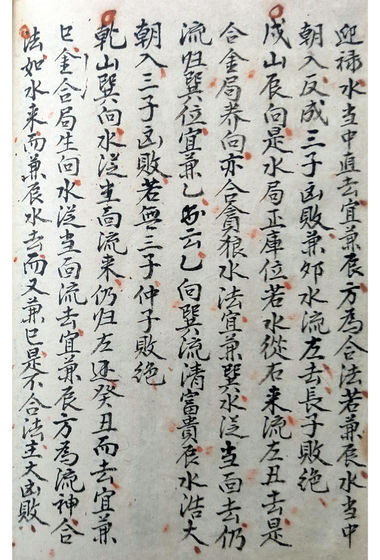 迎祿水当中直去宜兼辰方為合法若兼辰水当中
朝入反成三子凶敗兼卯水流左去長子敗絶
戍山辰向是水局正庫位若水從右来流左丑去是
合金局养向亦合貪狼水法宜兼巽水從当面去仍
流归巽位宜兼乙云乙向巽流清富貴辰水浩大
朝入三子凶敗若無三子仲子敗絶
乾山巽向水從生面流来仍归左逐癸丑而去宜兼
巳金合局生向水從当面流去宜兼辰方為流神合
法如水来而兼辰水去而又兼巳是不合法主大凶敗